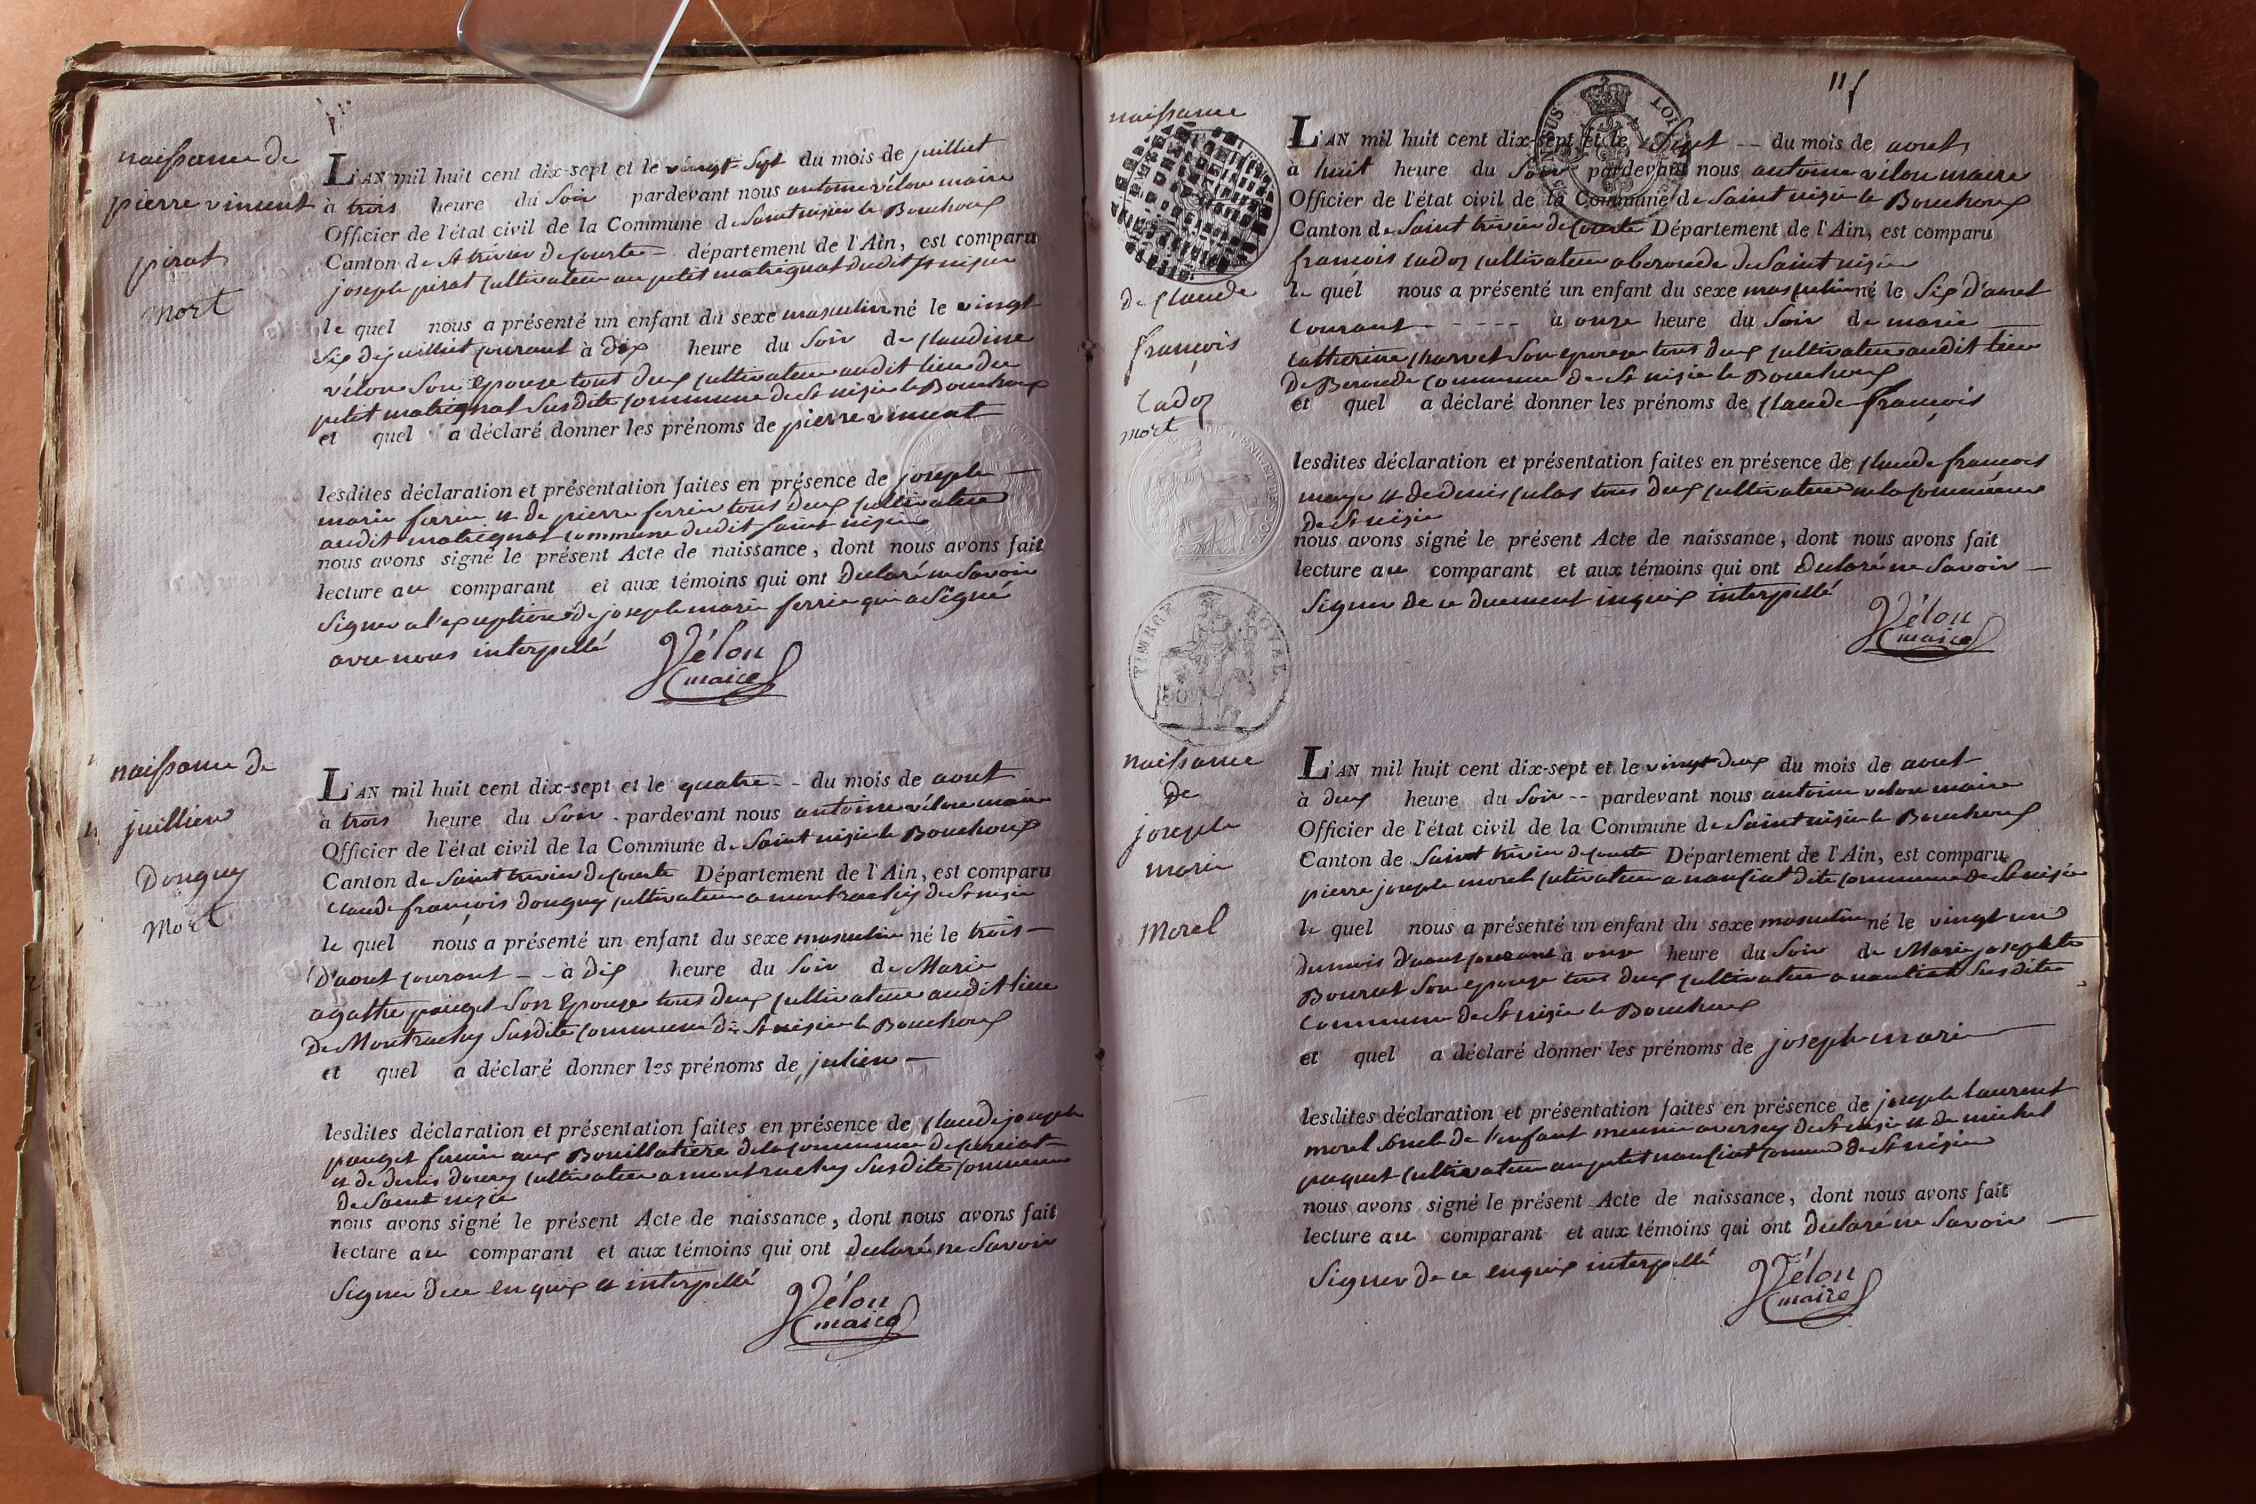 naissance de
pierre vincent
pirat
mort
L'AN mil huit cent dix-sept et le vingt-sept du mois de juillet
à trois heure du soir pardevant nous antoine vélon maire
Officier de l'état civil de la Commune de saint nizier le Bouchoux
Canton de St trivier de courte département de l'Ain, est comparu
joseph pirat cultivateur au petit matrignat dudit St nizier
le quel nous a présenté un enfant du sexe masculin né le vingt
six de juillet courant à dix heure du soir de claudine
vélon son epouze tout deux cultivateur audit lieu du
petit matrignat susdite commune de St nizier le Bouchoux
et quel a déclaré donner les prénoms de pierre vincent
lesdites déclaration et présentation faites en présence de joseph
marie ferrier et de pierre ferrier tous deux cultivateur
audit matrignat commune dudit saint nizier
nous avons signé le présent Acte de naissance, dont nous avons fait
lecture au comparant et aux témoins qui ont declaré ne savoir
signer a l'exuption de joseph marie ferrier qui a signé
avec nous interpellé
Vélon
maire
naissance de
juillien
Donguy
Mort
L'AN mil huit cent dix-sept et le quatre du mois de aout
à trois heure du soir pardevant nous antoine vélon maire
Officier de l'état civil de la Commune de saint nizier le Bouchoux
Canton de saint trivier de courte Département de l'Ain, est comparu
claude françois donguy cultivateur a montrachy de St nizier
le quel nous a présenté un enfant du sexe masculin né le trois
D'aout courant à dix heure du soir de Marie
agathe pauget son epouze tous deux cultivateur audit lieu
De Montrachy susdite commune de St nizier le Bouchoux
et quel a déclaré donner les prénoms de julien
lesdites déclaration et présentation faites en présence de claude joseph
pauget aux Bouillatière de la commune de curciat
et de denis cultivateur a montrachy susdite commune
de saint nizier
nous avons signé le présent Acte de naissance, dont nous avons fait
lecture au comparant et aux témoins qui ont declaré ne savoir
signer de ce enquix et interpellé
Vélon
maire
115
naissance
de claude
françois
cadoz
mort
TIMBRE ROYAL
L'AN mil huit cent dix-sept et le sept du mois de aout
à huit heure du soir pardevant nous antoine vélon maire
Officier de l'état civil de la Commune de saint nizier le Bouchoux
Canton de saint trivier de courte Département de l'Ain, est comparu
françois cadoz cultivateur a beroude de saint nizier
le quel nous a présenté un enfant du sexe masculin né le six d'aout
courant à onze heure du soir de marie
catherine charvet son epouze tous deux cultivateur audit lieu
De Beroude commune de St nizier le Bouchoux
et quel a déclaré donner les prénoms de claude françois
lesdites déclaration et présentation faites en présence de claude francois
et de denis tous deux cultivateur en la commune
de St nizier
nous avons signé le présent Acte de naissance, dont nous avons fait
lecture au comparant et aux témoins qui ont declaré ne savoir
signer de ce duement enquix interpellé
Vélon
maire
naissance
de
joseph
marie
Morel
L'AN mil huit cent dix-sept et le vingt deux du mois de aout
à deux heure du soir pardevant nous antoine velon maire
Officier de l'état civil de la Commune de saint nizier le Bouchoux
Canton de saint trivier de courte Département de l'Ain, est comparu
pierre joseph morel cutivateur a nanciat dite commune de St nizier
le quel nous a présenté un enfant du sexe masculin né le vingt un
du mois d'aout courant à onze heure du soir de Marie josephte
Bourcet son epouze tous deux cultivateur a nanciat susdite
commune de St nizier le Bouchoux
et quel a déclaré donner les prénoms de joseph marie
lesdites déclaration et présentation faites en présence de joseph laurent
morel oncle de l'enfant meunier a de St nizier et de michel
paquet cultivateur au petit nanciat commune de St nizier
nous avons signé le présent Acte de naissance, dont nous avons fait
lecture au comparant et aux témoins qui ont declaré ne savoir
signer de ce enquix interpellé
Vélon
maire